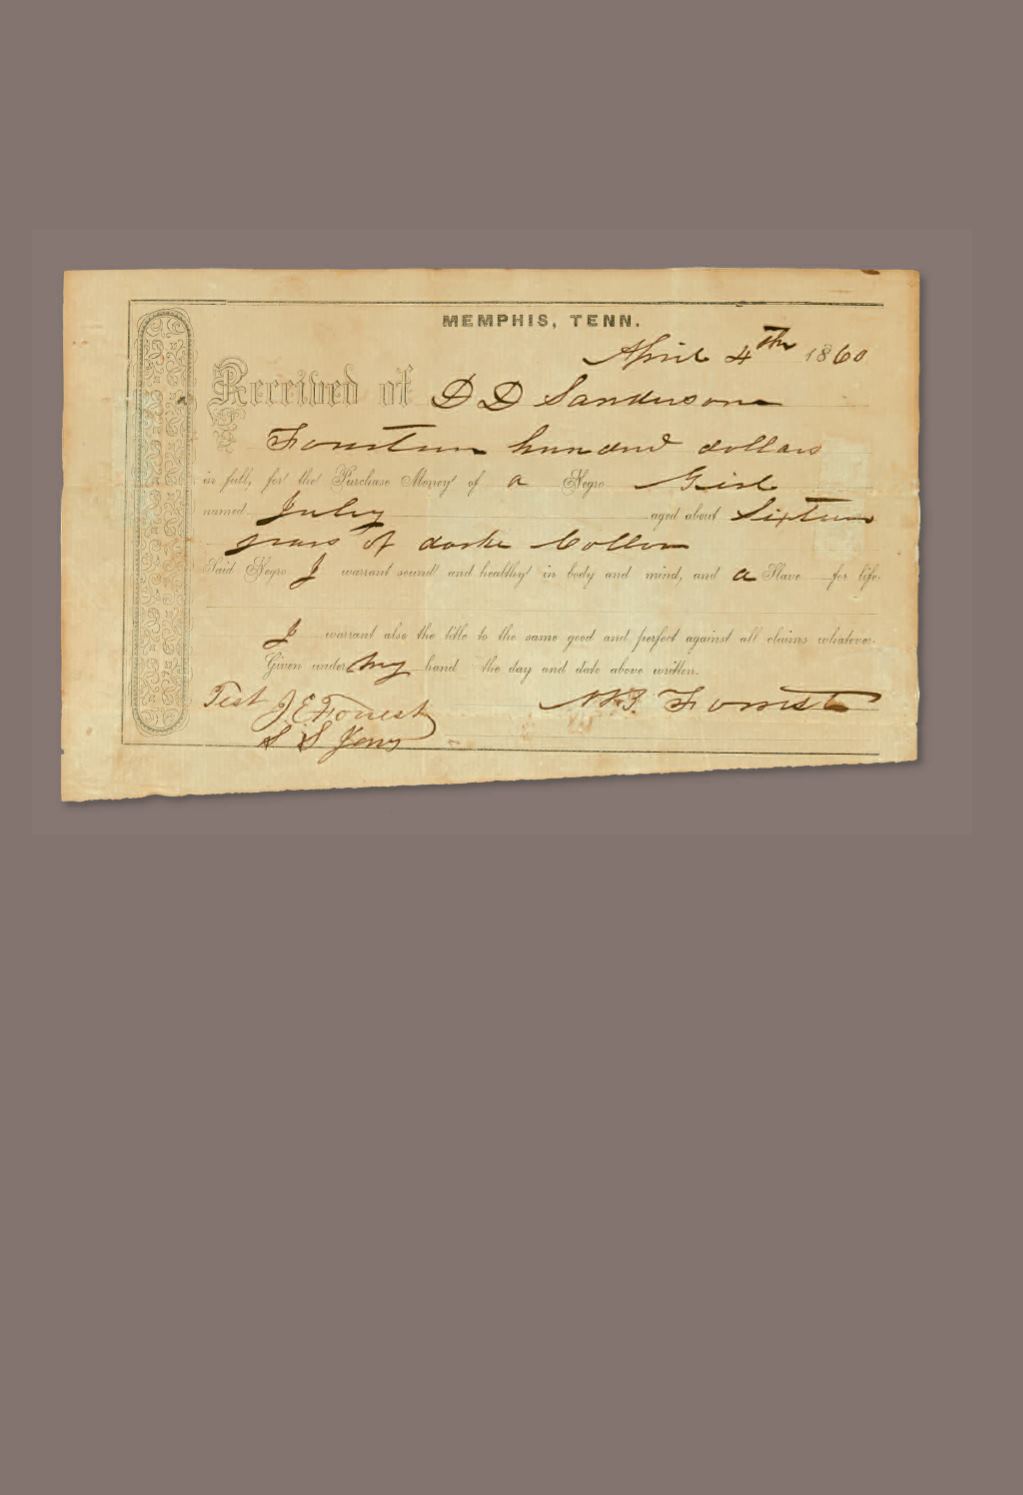 MEMPHIS, TENN.
April 4th 1860
Received of D D Sanderson
Fourteen hundred dollars
in full, for the Purchase Money of a Negro Girl
named July aged about Sixteen
years of darke Collor
Said Negro I warrant sound and healthy in body and mind, and a Slave for life.
I warrant also the title to the same good and perfect against all claims whatever.
Given under my hand the day and date above written.
Test J E Forrest N B Forrest
S S